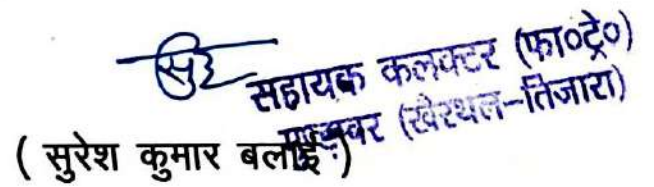 सहायक कलक्टर (फा०ट्रे०)
मुण्डावर (खैरथल-तिजारा)
( सुरेश कुमार बलाई )